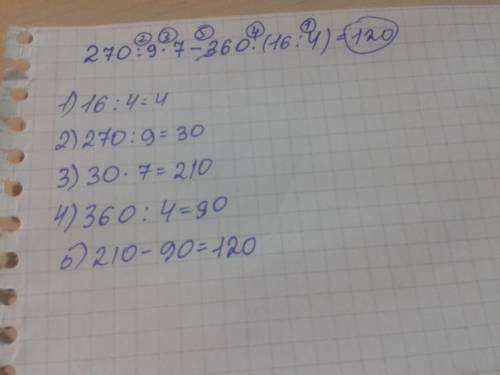 ② ③ ⑤ ④ ①
270:9·7-360:(16:4)=120
1) 16:4=4
2) 270:9=30
3) 30·7=210
4) 360:4=90
5) 210-90=120